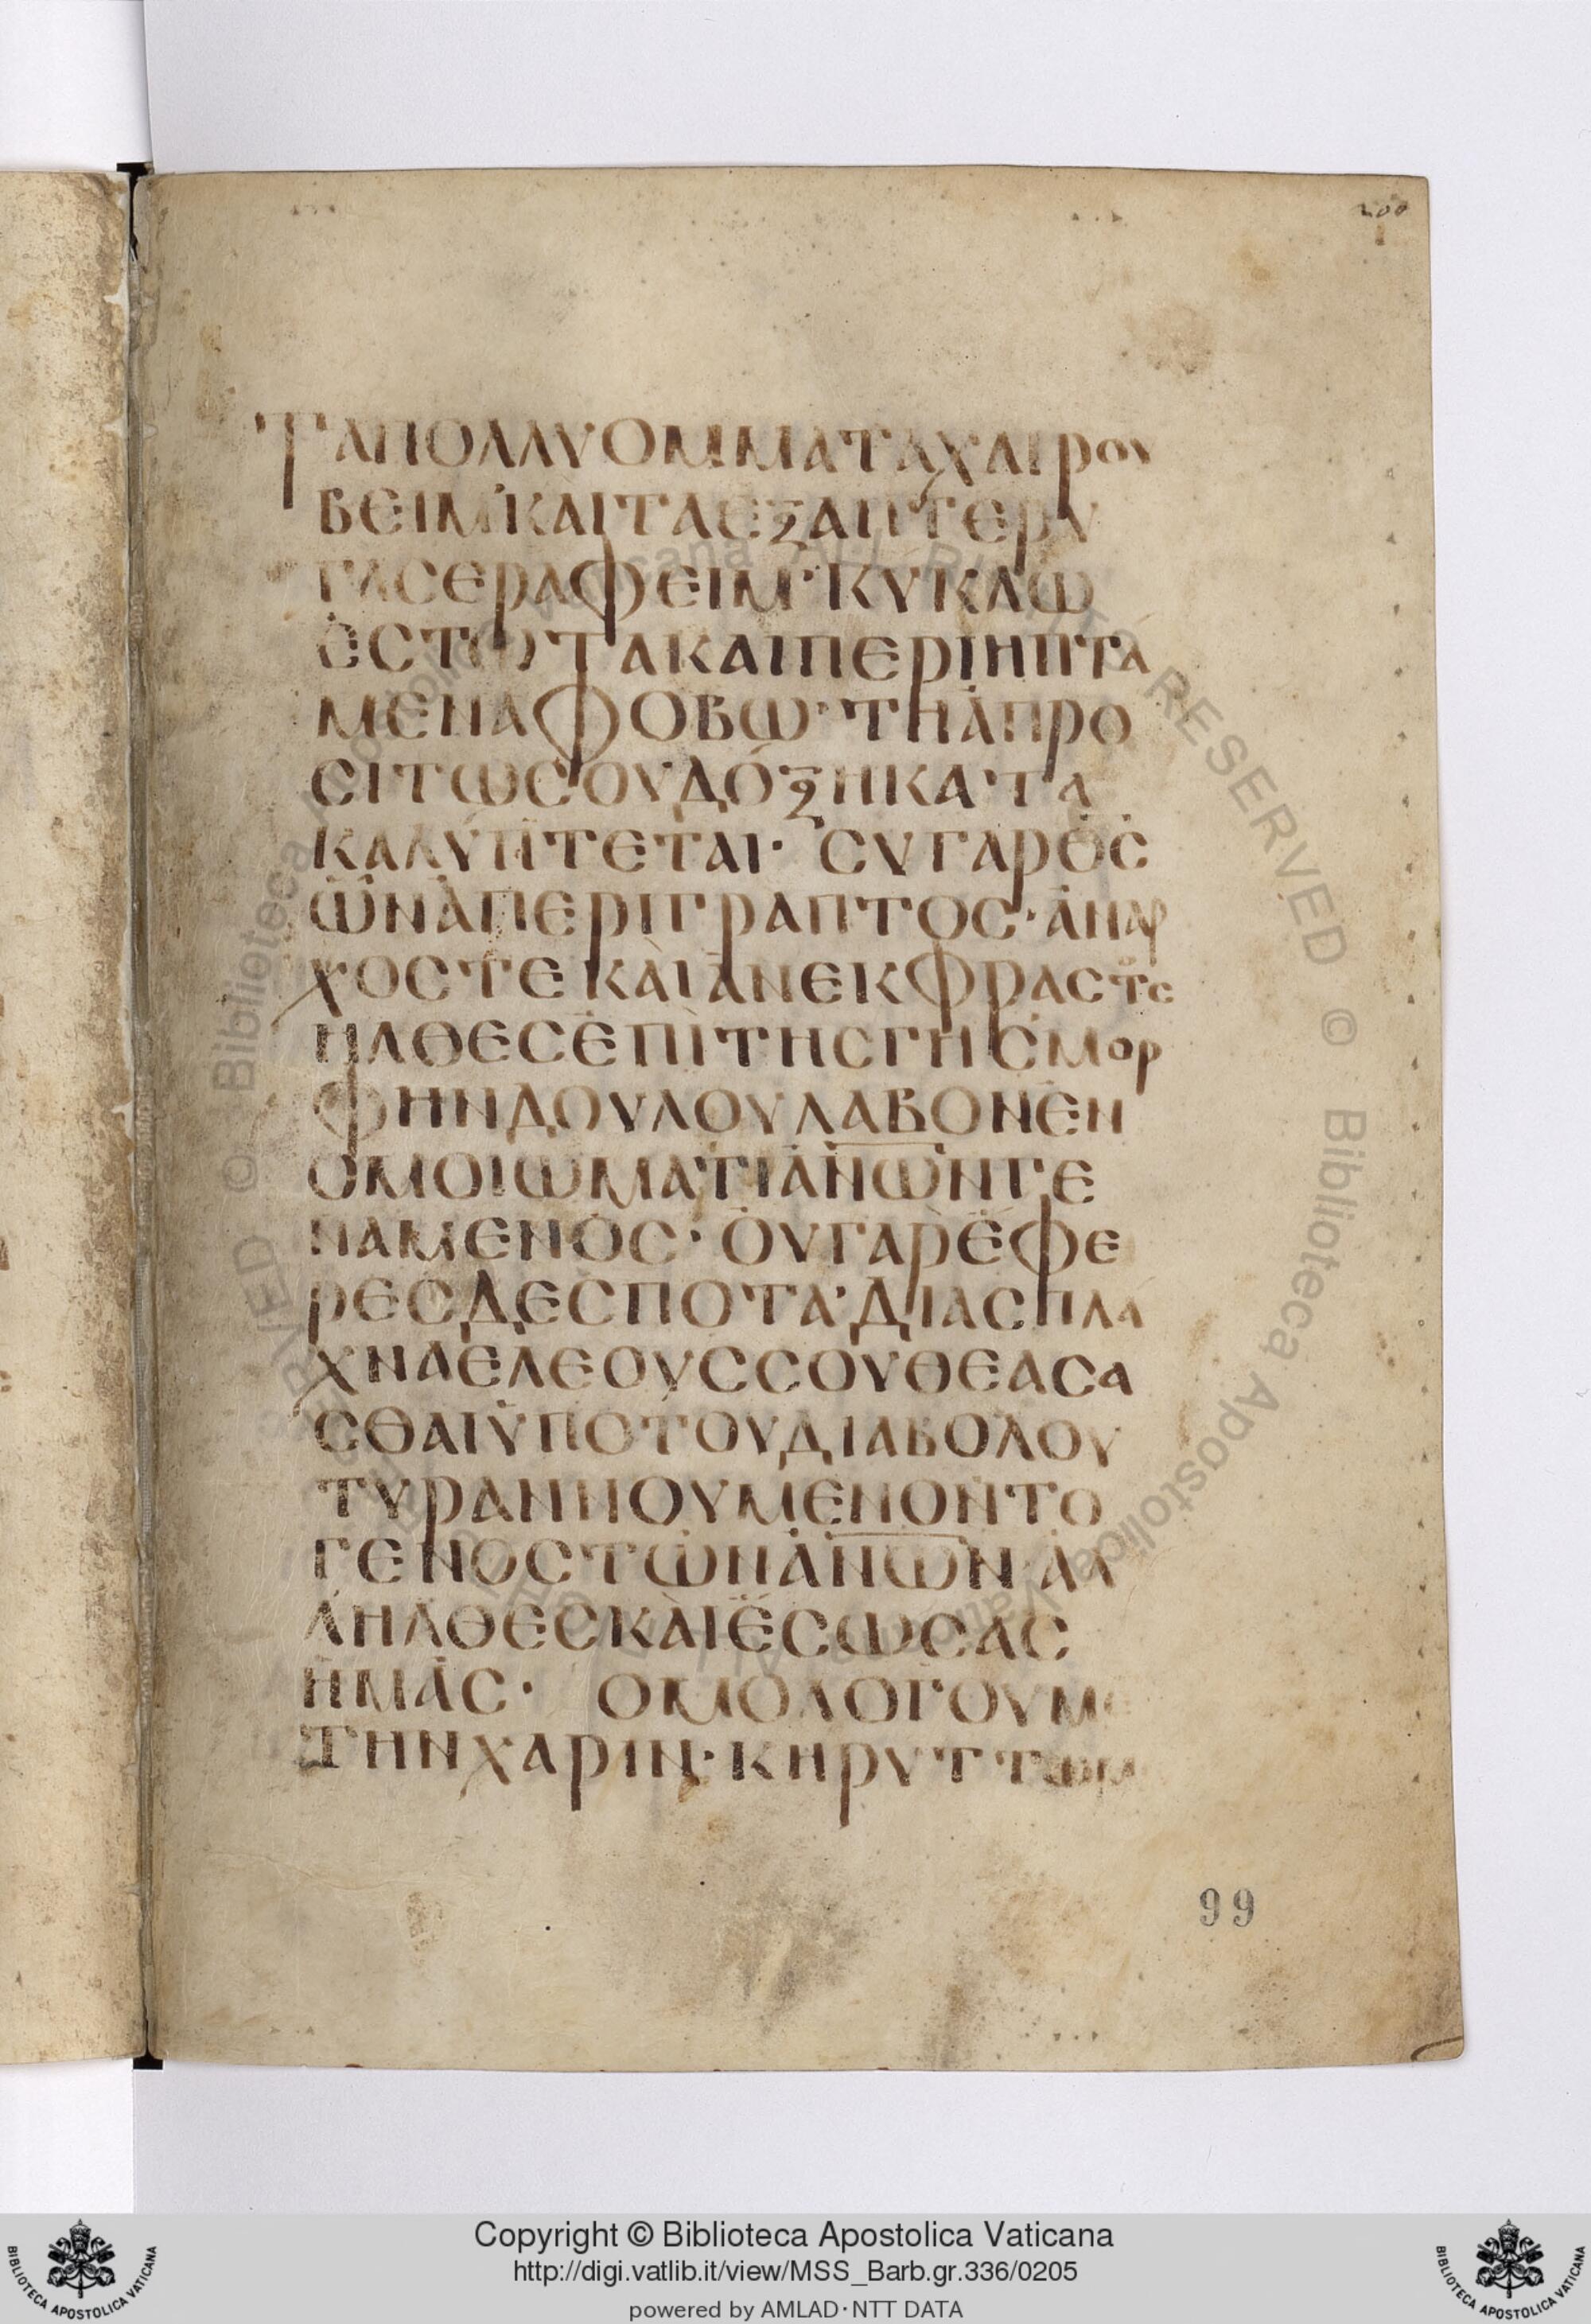 200
ΤΑΠΟΛΛΥΟΜΜΑΤΑΧΑΙΡΟΥ
ΒΕΙΜ·ΚΑΙΤΑΕΞΑΠΤΕΡΥ
ΓΑΣΕΡΑΦΕΙΜ·ΚΥΚΛΩ
ΕΣΤΩΤΑΚΑΙΠΕΡΙΗΠΤΑ
ΜΕΝΑΦΟΒΩ·ΤΗΑΠΡΟ
ΣΙΤΩΣΟΥΔΟΞΗΚΑΤΑ
ΚΑΛΥΠΤΕΤΑΙ· ΣΥΓΑΡΘΣ
ΩΝΑΠΕΡΙΓΡΑΠΤΟΣ·ΑΝΑΡ
ΧΟΣΤΕΚΑΙΑΝΕΚΦΡΑΣΤΟΣ
ΗΛΘΕΣΕΠΙΤΗΣΓΗΣΜΟΡ
ΦΗΝΔΟΥΛΟΥΛΑΒΟΝΕΝ
ΟΜΟΙΩΜΑΤΙΑΝΩΝΓΕ
ΝΑΜΕΝΟΣ· ΟΥΓΑΡΕΦΕ
ΡΕΣΔΕΣΠΟΤΑ·ΔΙΑΣΠΛΑ
ΧΝΑΕΛΕΟΥΣΣΟΥΘΕΑΣΑ
ΣΘΑΙΥΠΟΤΟΥΔΙΑΒΟΛΟΥ
ΤΥΡΑΝΝΟΥΜΕΝΟΝΤΟ
ΓΕΝΟΣΤΩΝΑΝΩΝ·ΑΛ
ΛΗΛΘΕΣΚΑΙΕΣΩΣΑΣ
ΗΜΑΣ· ΟΜΟΛΟΓΟΥΜΕ
ΤΗΝΧΑΡΙΝ·ΚΗΡΥΤΤΩΜ
99
Copyright © Biblioteca Apostolica Vaticana
http://digi.vatlib.it/view/MSS_Barb.gr.336/0205
powered by AMLAD·NTT DATA
BIBLIOTECA APOSTOLICA VATICANA
BIBLIOTECA APOSTOLICA VATICANA